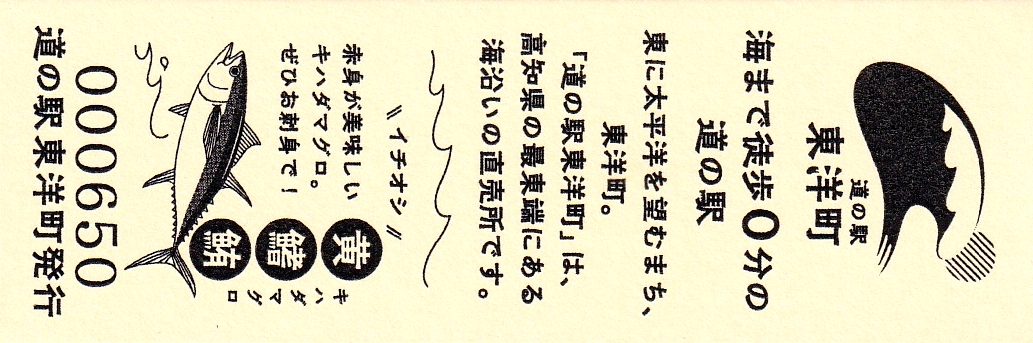 道の駅
東洋町
海まで徒歩0分の
道の駅
東に太平洋を望むまち、
東洋町。
「道の駅東洋町」は、
高知県の最東端にある
海沿いの直売所です。
\\イチオシ//
赤身が美味しい
キハダマグロ。
ぜひお刺身で!
黄鰭鮪
キハダマグロ
000650
道の駅東洋町発行